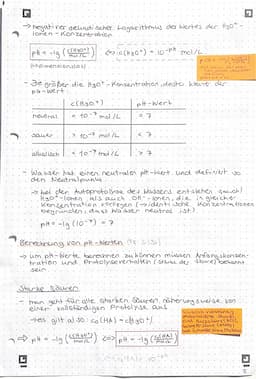 → negativer dekadischer Logarithmus des Wertes der H₃O⁺-
Ionen-Konzentration
pH = -lg (c(H₃O⁺) / mol/L) ⇔ c(H₃O⁺) = 10^-pH mol/L
(dimensionslos)
- Je größer die H₃O⁺-Konzentration desto kleiner der
pH-Wert.
c(H₃O⁺) pH-Wert
neutral = 10⁻⁷ mol/L = 7
sauer > 10⁻⁷ mol/L < 7
alkalisch < 10⁻⁷ mol/L > 7
- Wasser hat einen neutralen pH-Wert und definiert so
den Neutralpunkt
→ bei der Autoprotolyse des Wassers entstehen sowohl
H₃O⁺-Ionen als auch OH⁻-Ionen, die in gleicher
Konzentration vorliegen → identische Konzentrationen
begründen, dass Wasser neutral ist!
pH = -lg (10⁻⁷) = 7
Berechnung von pH-Werten
→ um pH-Werte berechnen zu können müssen Anfangskonzen-
tration und Protolyseverhalten (Stärke der Säure) bekannt
sein
Starke Säuren
- man geht für alle starken Säuren näherungsweise von
einer vollständigen Protolyse aus
→ es gilt also: c₀(HA) = c(H₃O⁺)
⇒ pH = -lg (c(H₃O⁺) / mol/L) ⇔ pH = -lg (c₀(HA) / mol/L)